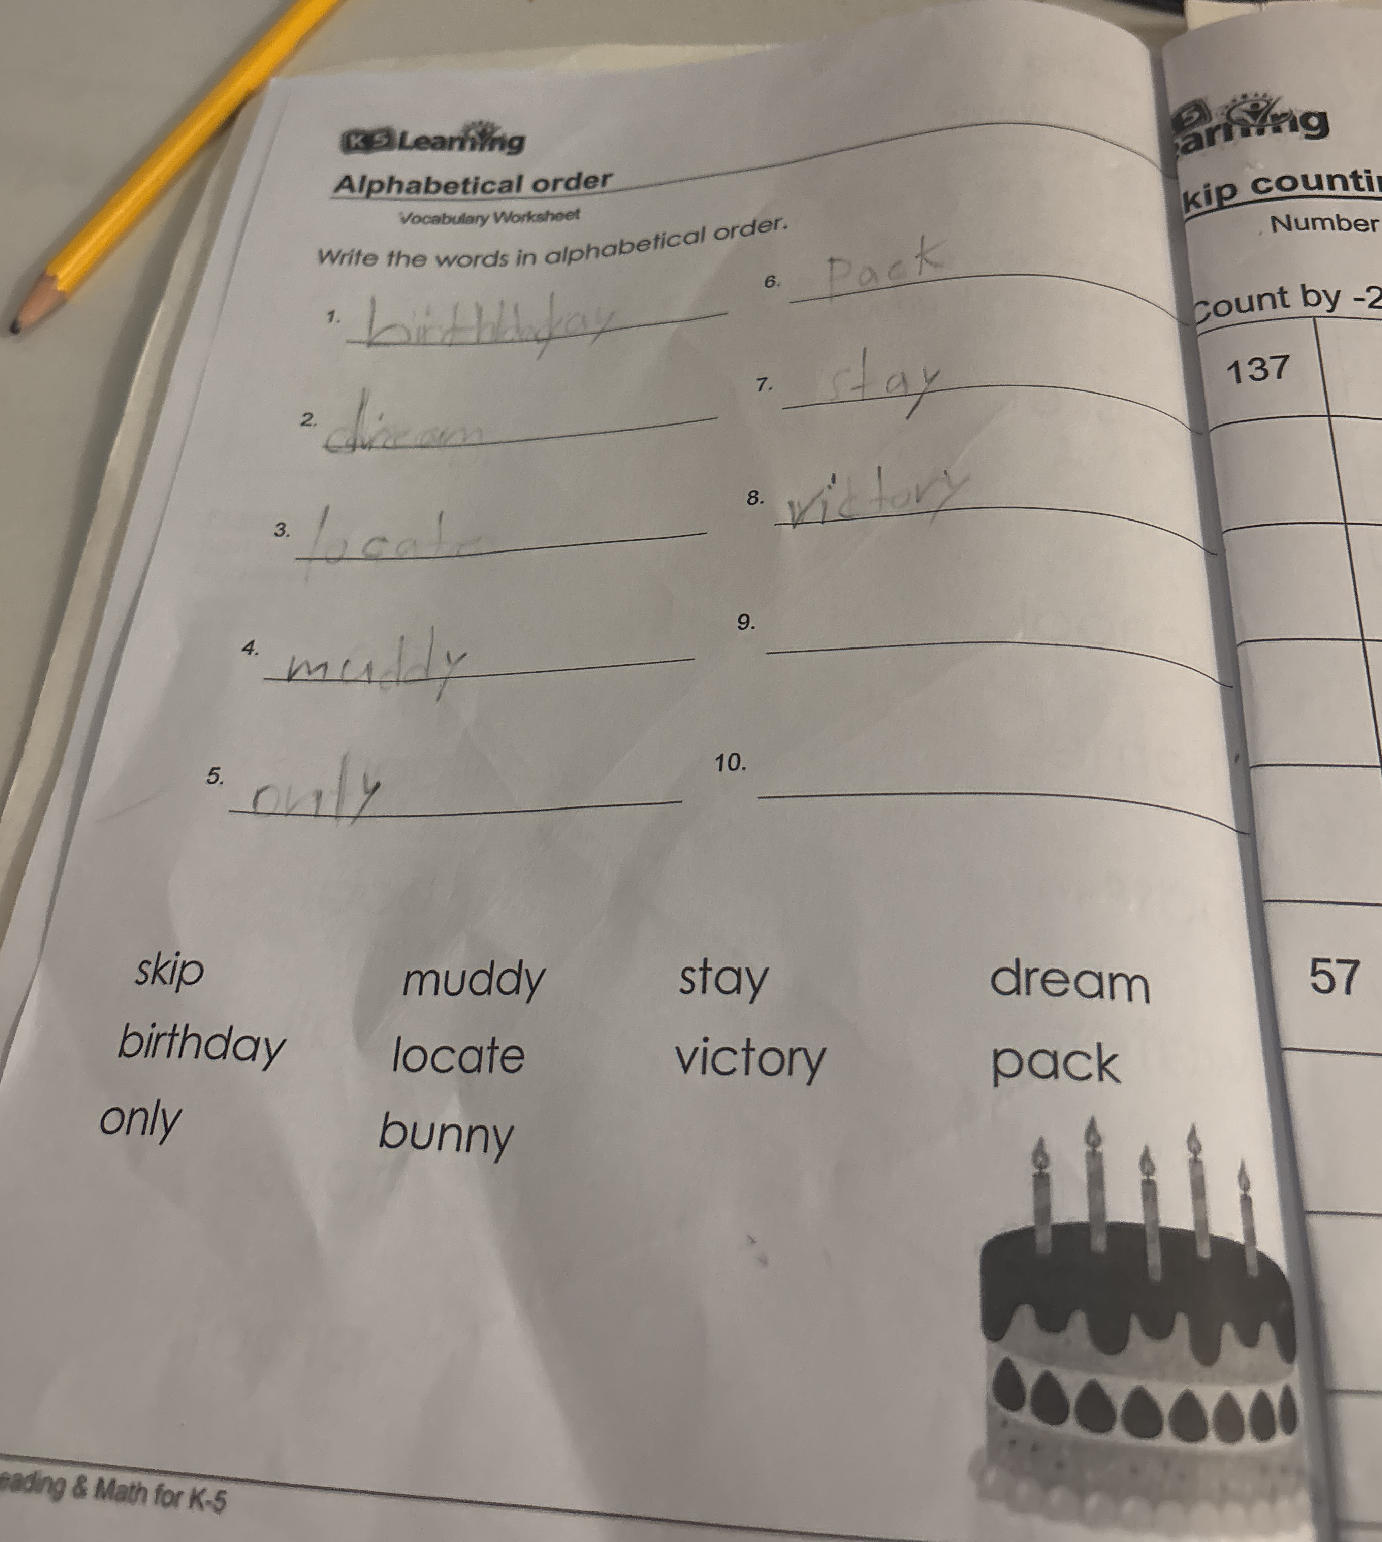 K5 Learning
Alphabetical order
Vocabulary Worksheet
Write the words in alphabetical order.
1. birthday
2. dream
3. locate
4. muddy
5. only
6. Pack
7. stay
8. victory
9.
10.
skip muddy stay dream
birthday locate victory pack
only bunny
eading & Math for K-5
5 earning
kip counti
Number
Count by -2
137
57